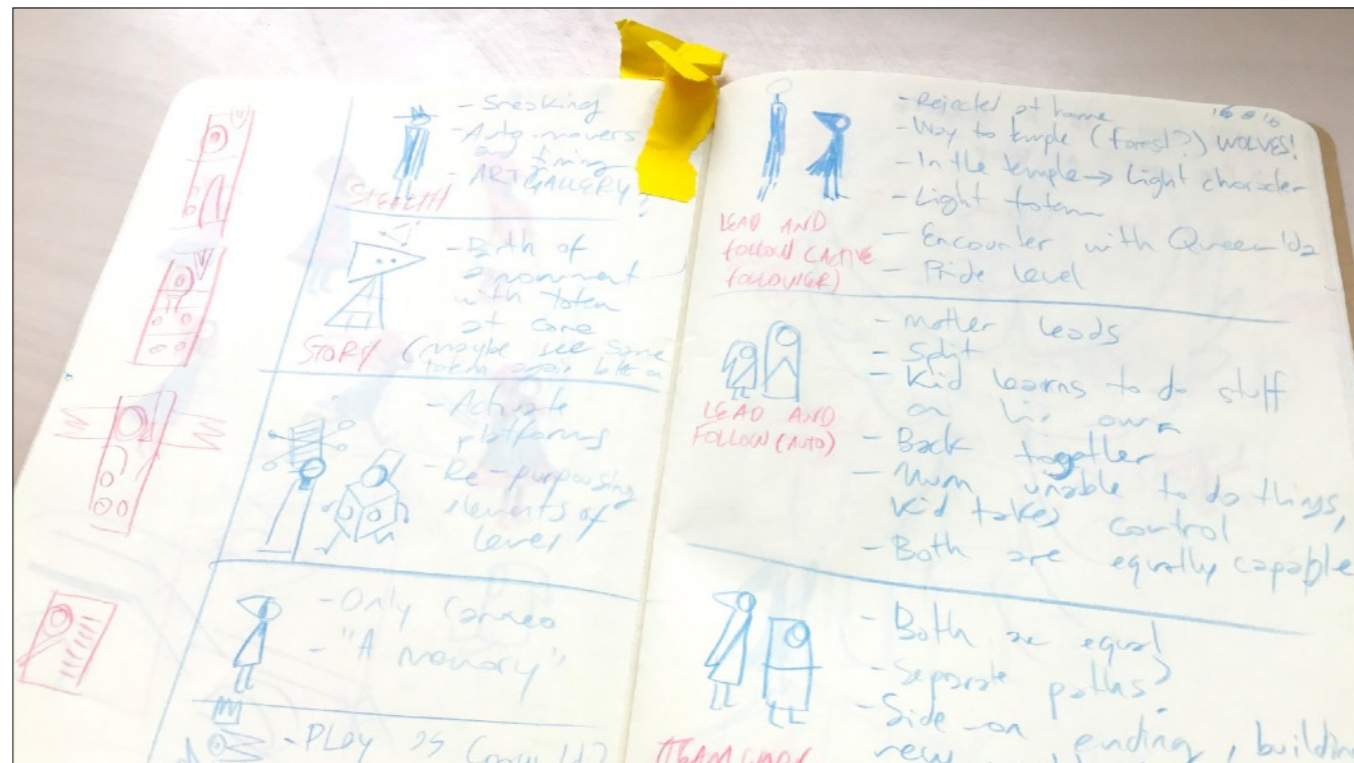 - Sneaking
- Auto-movers
and timing
- ART GALLERY?
STEALTH
- Birth of
a monument
with totem
at core
STORY (maybe see same
totem again later on
- Activate
platforms
- Re-purposing
elements of
level
- Only cameo
- "A memory"
- Play as
- Rejected at home
16 8 16
- Way to temple (forest?) WOLVES!
- In the temple → Light character
- Light totem
- Encounter with Queen Ida
- Pride level
LEAD AND
FOLLOW (ACTIVE
FOLLOWER)
- Mother leads
- Split
- Kid learns to do stuff
on his own
- Back together
- Mum unable to do things,
Kid takes control
- Both are equally capable
LEAD AND
FOLLOW (AUTO)
- Both are equal
- Separate paths?
- Side-on ending, building
new
TEAM WORK